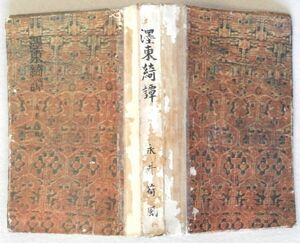 濹東綺譚
永井荷風
濹東綺譚